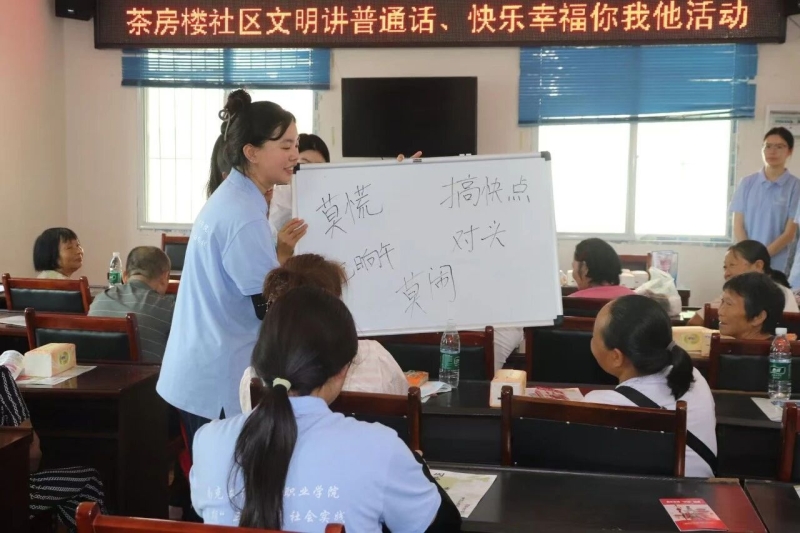 茶房楼社区文明讲普通话、快乐幸福你我他活动
莫慌
搞快点
晌午
对头
莫闹
职业学院
社会实践